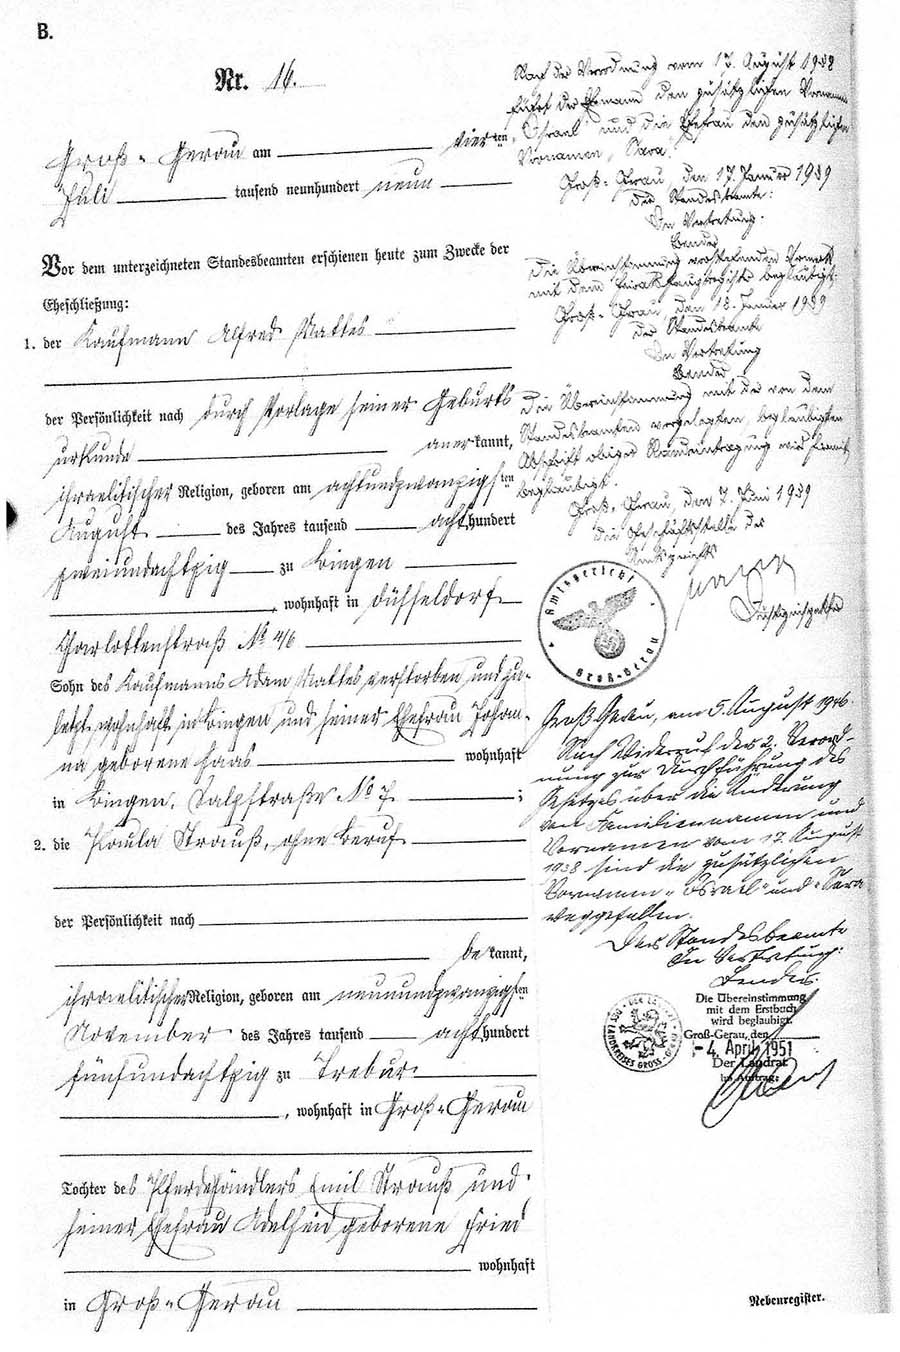 B.
Nr. 16.
Groß-Gerau am vierten
Juli tausend neunhundert neun
Vor dem unterzeichneten Standesbeamten erschienen heute zum Zwecke der
Eheschließung:
1. der Kaufmann Alfred Mattes
der Persönlichkeit nach durch Vorlage seiner Geburts
urkunde anerkannt,
israelitischer Religion, geboren am achtundzwanzigsten
August des Jahres tausend achthundert
zweiundachtzig zu Bingen
, wohnhaft in Düsseldorf
Charlottenstraß No 46
Sohn des Kaufmanns Adam Mattes verstorben und zu-
letzt wohnhaft in Bingen und seiner Ehefrau Johan-
na geborene Haas wohnhaft
in Bingen, Salzstraße No 7 ;
2. die Paula Strauß, ohne Beruf
der Persönlichkeit nach
bekannt,
israelitischer Religion, geboren am neunundzwanzigsten
November des Jahres tausend achthundert
fünfundachtzig zu Trebur
, wohnhaft in Groß-Gerau
Tochter des Pferdehändlers Emil Strauß und
seiner Ehefrau Adelheid geborene Fried
wohnhaft
in Groß-Gerau
Nach der Verordnung vom 17. August 1938
führt der Ehemann den zusätzlichen Vornamen
„Israel" und die Ehefrau den zusätzlichen
Vornamen „Sara.
Groß-Gerau, den 17. Januar 1939
Der Standesbeamte:
In Vertretung.
Bender
Die Übereinstimmung vorstehenden Vermerks
mit dem Heiratshauptregister beglaubigt:
Groß-Gerau, den 18. Januar 1939
Der Standesbeamte
In Vertretung
Bender
Die Übereinstimmung mit der von dem
Standesbeamten vorgelegten, beglaubigten
Abschrift obiger Randeintragung wird hiermit
beglaubigt.
Groß-Gerau, den 7. Juni 1939
Die Geschäftsstelle des
Amtsgerichts
Amtsgericht
Groß-Gerau
Groß-Gerau, am 5. August 1946.
Nach Widerruf der 2. Verord-
nung zur Durchführung des
Gesetzes über die Änderung
von Familiennamen und
Vornamen vom 17. August
1938 sind die zusätzlichen
Vornamen „Israel" und „Sara
weggefallen.
Der Standesbeamte
In Vertretung:
Bender.
DER LANDRAT DES LANDKREISES GROSS-GERAU
Die Übereinstimmung
mit dem Erstbuch
wird beglaubigt.
Groß-Gerau, den
- 4. April 1951
Der Landrat
Im Auftrag:
Nebenregister.